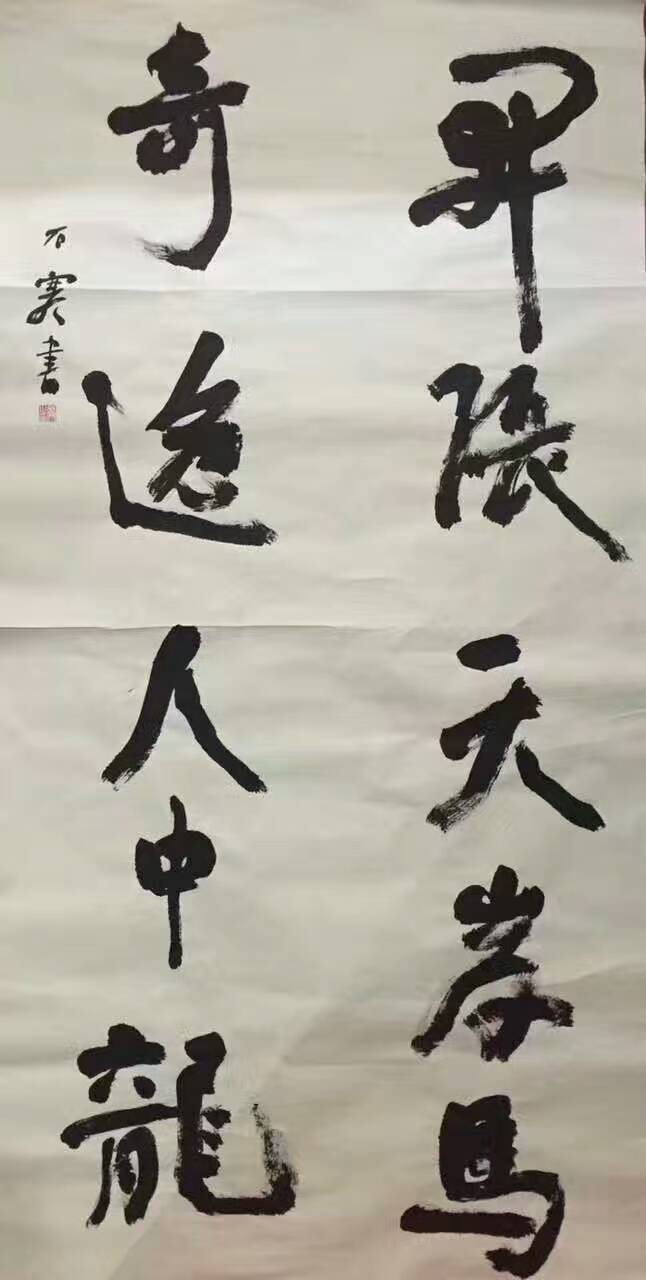 開張天岸馬
奇逸人中龍
石 書